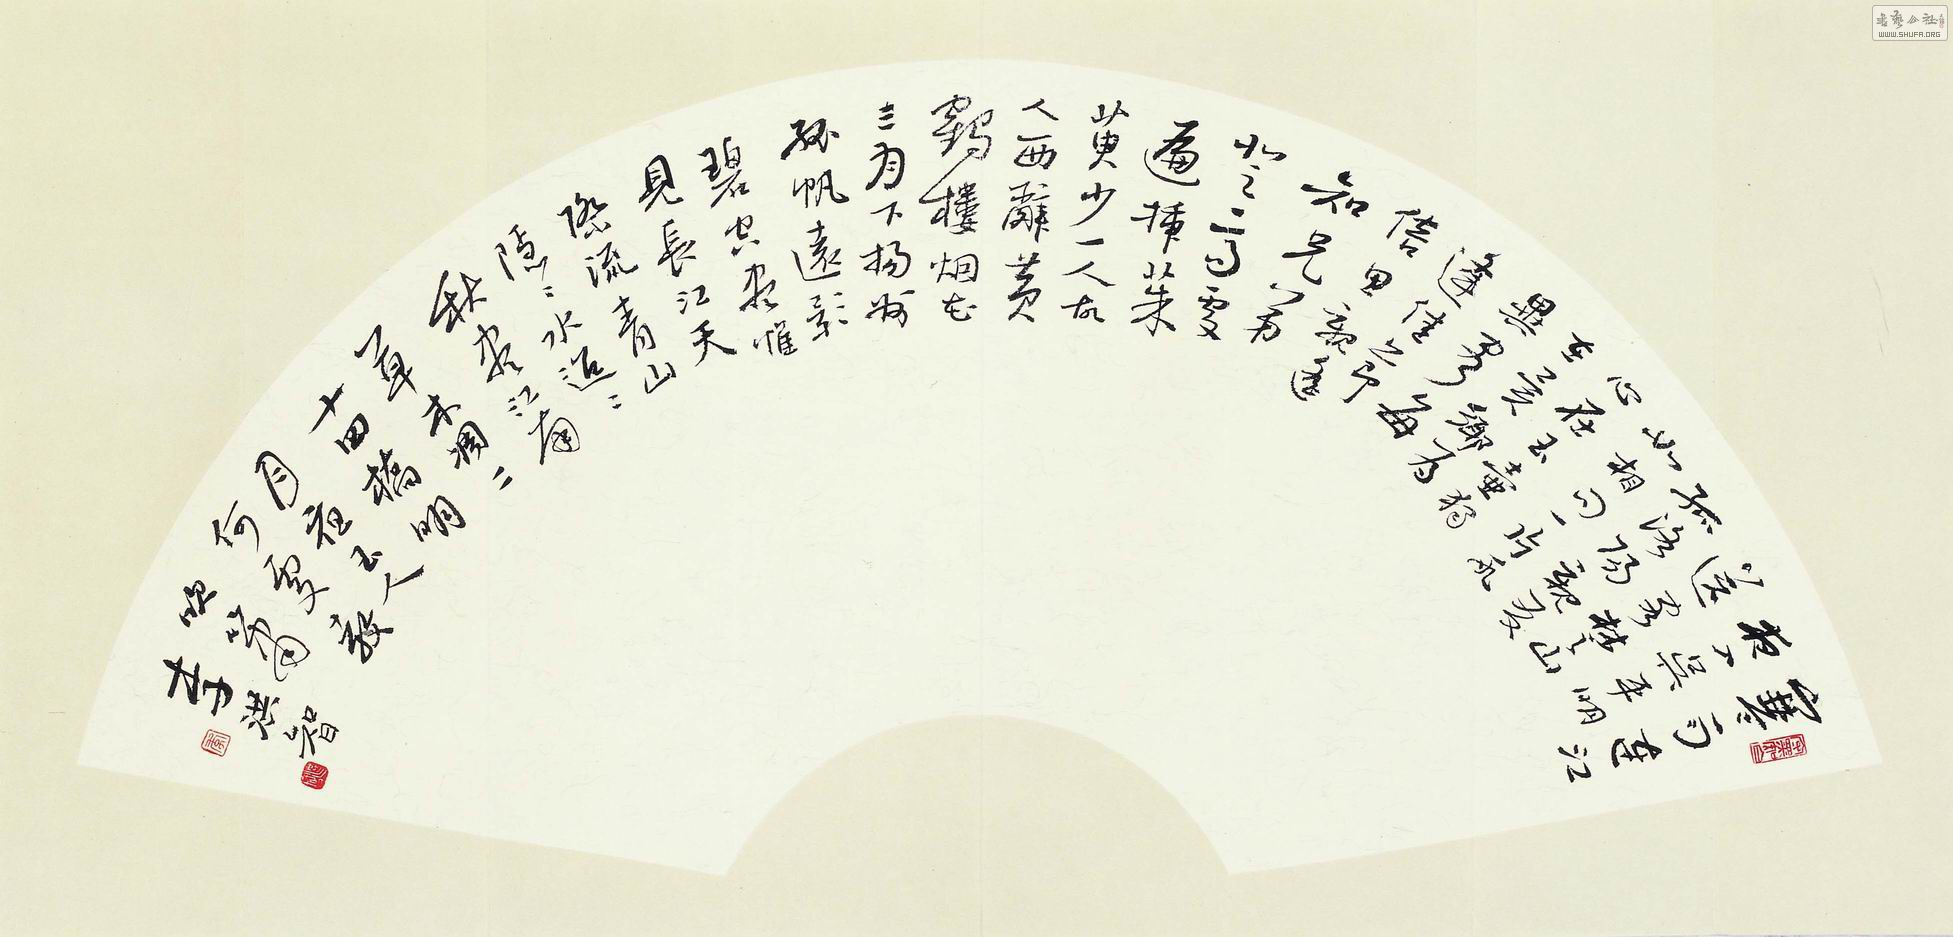 寒雨連江
夜入吳平明
送客楚山
孤洛陽親友
如相問一片冰
心在玉壺獨
在異鄉為
異客每
逢佳節
倍思親遙
知兄弟
登高處
遍插茱
萸少一人故
人西辭黃
鶴樓烟花
三月下揚州
孤帆遠影
碧空盡惟
見長江天
際流青山
隱〻水迢〻
秋盡江南
草未凋二
十四橋明
月夜玉人
何處教
吹簫
李洪智
書藝公社
WWW.SHUFA.ORG